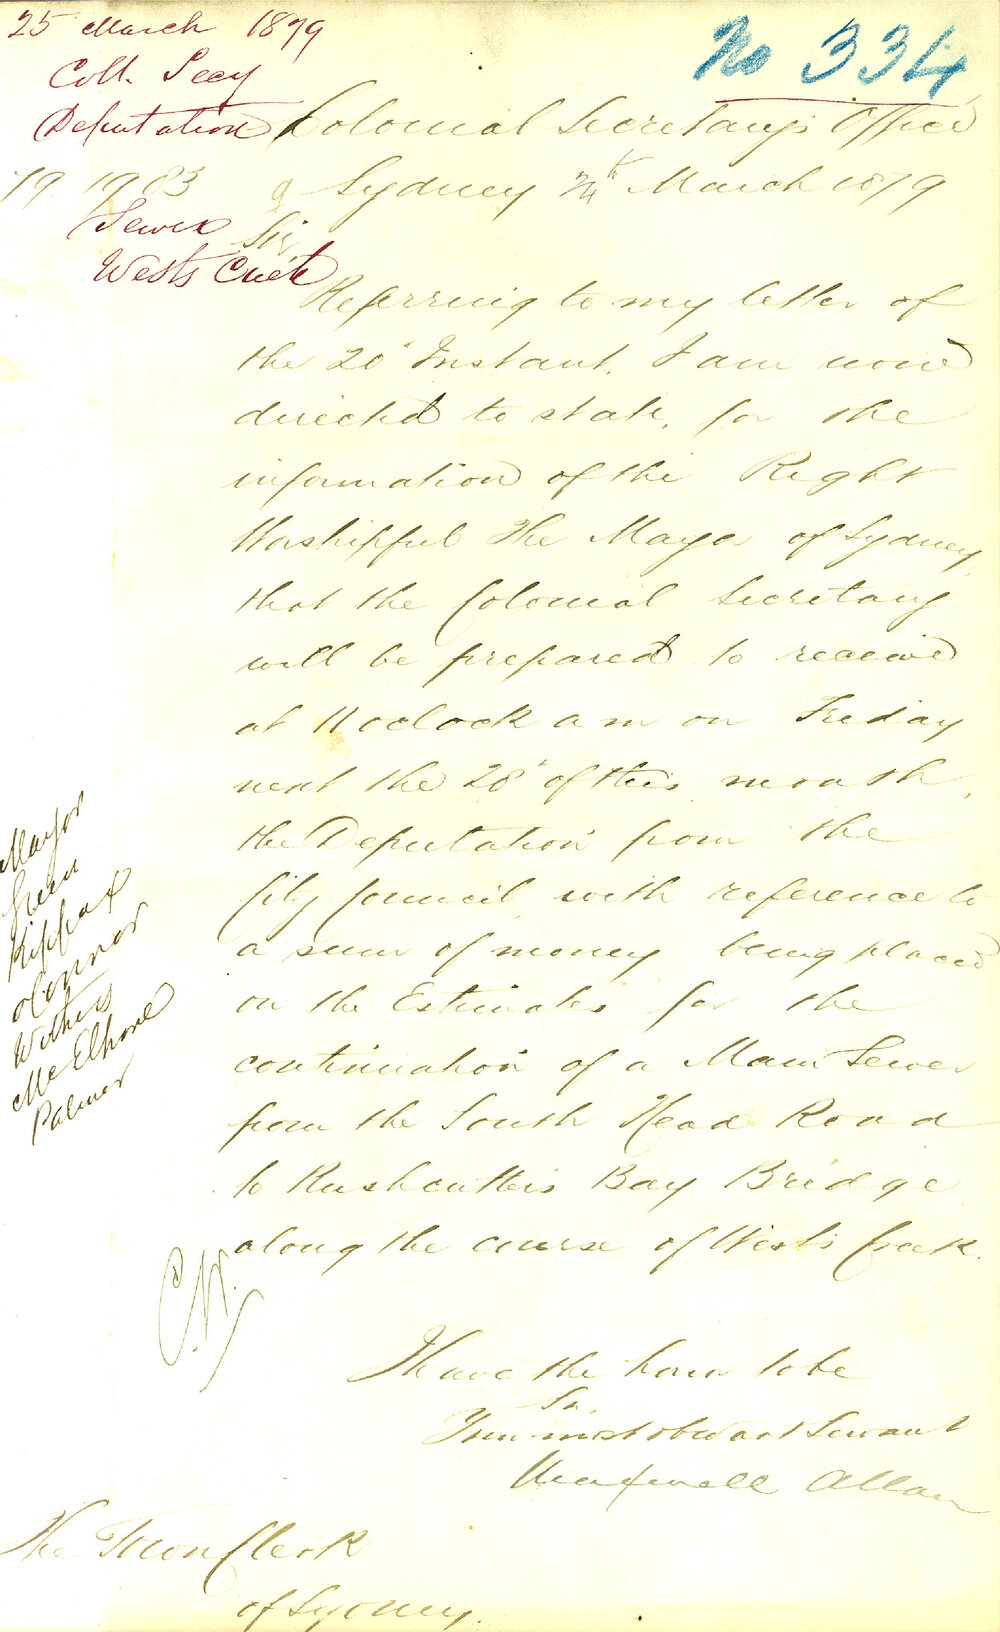 25 March 1879
Coll. Secy
Deputation
No 334
Colonial Secretary's Office
79 1983
Sydney 24th March 1879
Sewer
Wests Creek
Sir,
Referring to my letter of
the 20" Instant, I am now
directed to state, for the
information of the Right
Worshipful The Mayor of Sydney,
that the Colonial Secretary
will be prepared to receive
at 11 oclock a m on Friday
next the 28" of this month,
the Deputation from the
City Council with reference to
a sum of money being placed
on the Estimates for the
continuation of a Main Sewer
from the South Head Road
to Rushcutters Bay Bridge
along the course of West's Creek.
Mayor
Green
Kippax
OConnor
Withers
McElhone
Palmer
I have the honor to be
Sir,
Your most obedient Servant
Maxwell Allan
The Town Clerk
of Sydney.